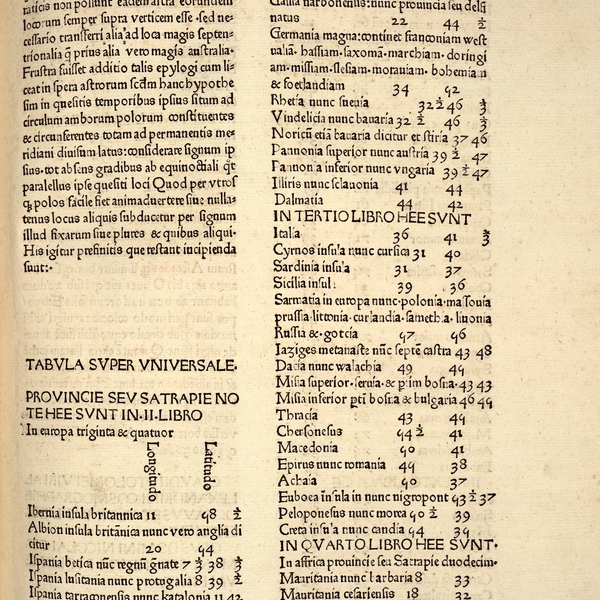 raticis non possunt eadem astra eorundem
locorum semper supra verticem esse·sed ne⸗
cessario transferri alia ad loca magis septen⸗
trionalia q̃ prius alia vero magis australia·
Frustra fuisset additio talis epylogi cum li⸗
ceat in spera astrorum scďm hanc hypothe
sim in quesitis temporibus ipsius situm ad
circulum amborum polorum constituentes
& circunferentes totam ad permanentis me⸗
ridiani diuisum latus:considerare signum ip
sius·tot absens gradibus ab equinoctiali q̃t
parallelus ipse quesiti loci Quod per vtros
q; polos facile fiet animaduertere siue nulla⸗
tenus locus aliquis subducetur per signum
illud fixarum siue plures & quibus aliqui·
His igitur prefinitis que restant incipienda
sunt:·
TABVLA SVPER VNIVERSALE·
PROVINCIE SEV SATRAPIE NO
TE HEE SVNT IN·II·LIBRO
In europa triginta & quatuor
Longitudo
Latitudo
Ibernia insula britannica 11 48 ½
Albion insula britãnica nunc vero anglia di
citur 20 44
Ispania betica nũc regnũ gñate 7 ⅓ 38 ⅓
Ispania lusitania nunc protugalia 8 39 ½
Ispania tarraconensis nunc katalonia 11 42
Gallia narbonensis:nunc prouincia seu delfi
natus 22 44 ½
Germania magna:continet franconiam west
ualiã·hassiam·saxomã·marchiam·doringi
am·missiam·slesiam·morauiam·bohemiam
& foetlandiam 34 42
Rhetia nunc sueuia 32 ½ 46 ⅓
Vindelicia nunc bauaria 32 ½ 46 ⅓
Noricũ etiã bauaria dicitur et stiria 37 46
Pannonia superior nunc austria 39 ½ 47
Pannonia inferior nunc vngaria 39 ½ 47
Illiris nunc sclauonia 41 44
Dalmatia 44 42
IN TERTIO LIBRO HEE SVNT
Italia 36 41 ⅓
Cyrnos insula nunc cursica 31 40
Sardinia insula 31 37
Sicilia insul: 39 36
Sarmatia in europa nunc·polonia·massouia
prussia·littonia·curlandia·sameth.a·liuonia
Russia &·gotcia 47 46
Iaziges metanaste nũc septẽ castra 43 48
Dacia nunc walachia 49 49
Misia superior·seruia·& prim bosna·43 43
Misia inferior pti bosna & bulgaria 46 49
Thracia 43 49
Chersonesus 44 ½ 41
Macedonia 40 41
Epirus nunc romania 49 38
Achaia 40 37
Euboea insula in nunc nigropont 43 ½ 37
Peloponesus nunc morea 40 ½ 39
Creta insula nunc candia 44 39
IN QVARTO LIBRO HEE SVNT·
In affrica prouincie seu Satrapie duodecim·
Mauritania nunc barbaria 8 33
Mauritania cesariensis 18 32